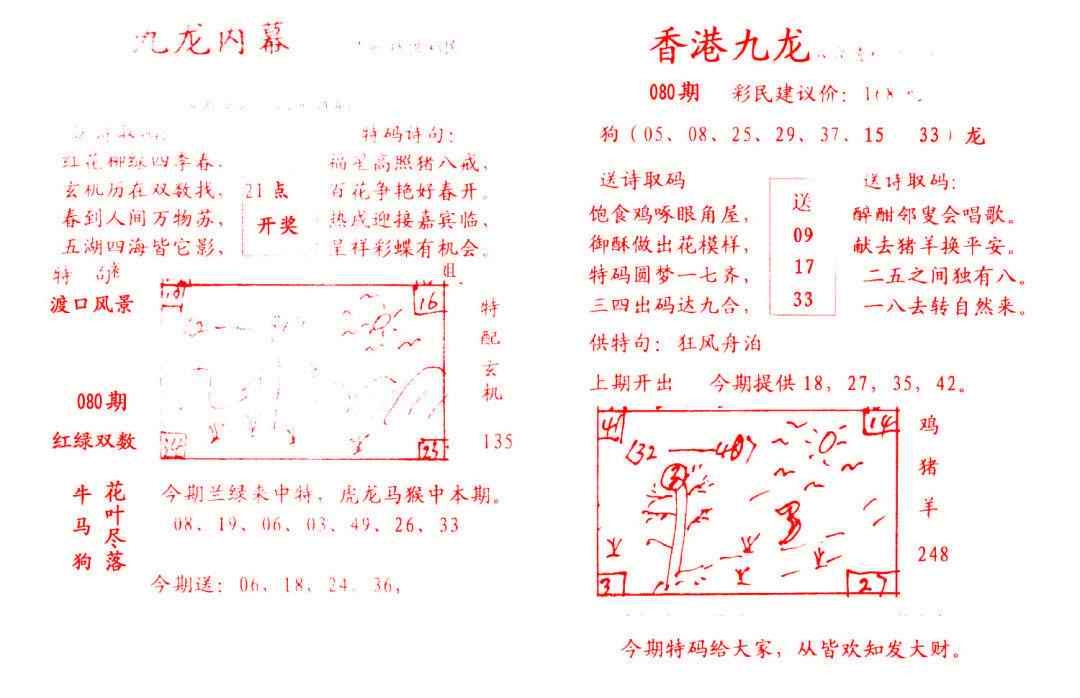 九龙内幕
特码诗句：
红花柳绿四季春，
玄机历在双数找，
春到人间万物苏，
五湖四海皆它影，
21点
开奖
福星高照猪八戒，
百花争艳好春开。
热戍迎接嘉宾临，
呈祥彩蝶有机会。
特
渡口风景
080期
红绿双数
16
23
特配玄机
135
牛马狗
花叶尽落
今期兰绿来中特，虎龙马猴中本期。
08、19、06、03、49、26、33
今期送：06，18，24，36，
香港九龙
080期 彩民建议价：
狗（05、08、25、29、37、15 33）龙
送诗取码
饱食鸡啄眼角屋，
御酥做出花模样，
特码圆梦一七齐，
三四出码达九合，
送
09
17
33
送诗取码：
醉酣邻叟会唱歌。
献去猪羊换平安。
二五之间独有八。
一八去转自然来。
供特句：狂风舟泊
上期开出 今期提供18，27，35，42。
41
14
3
27
鸡
猪
羊
248
今期特码给大家，从皆欢知发大财。